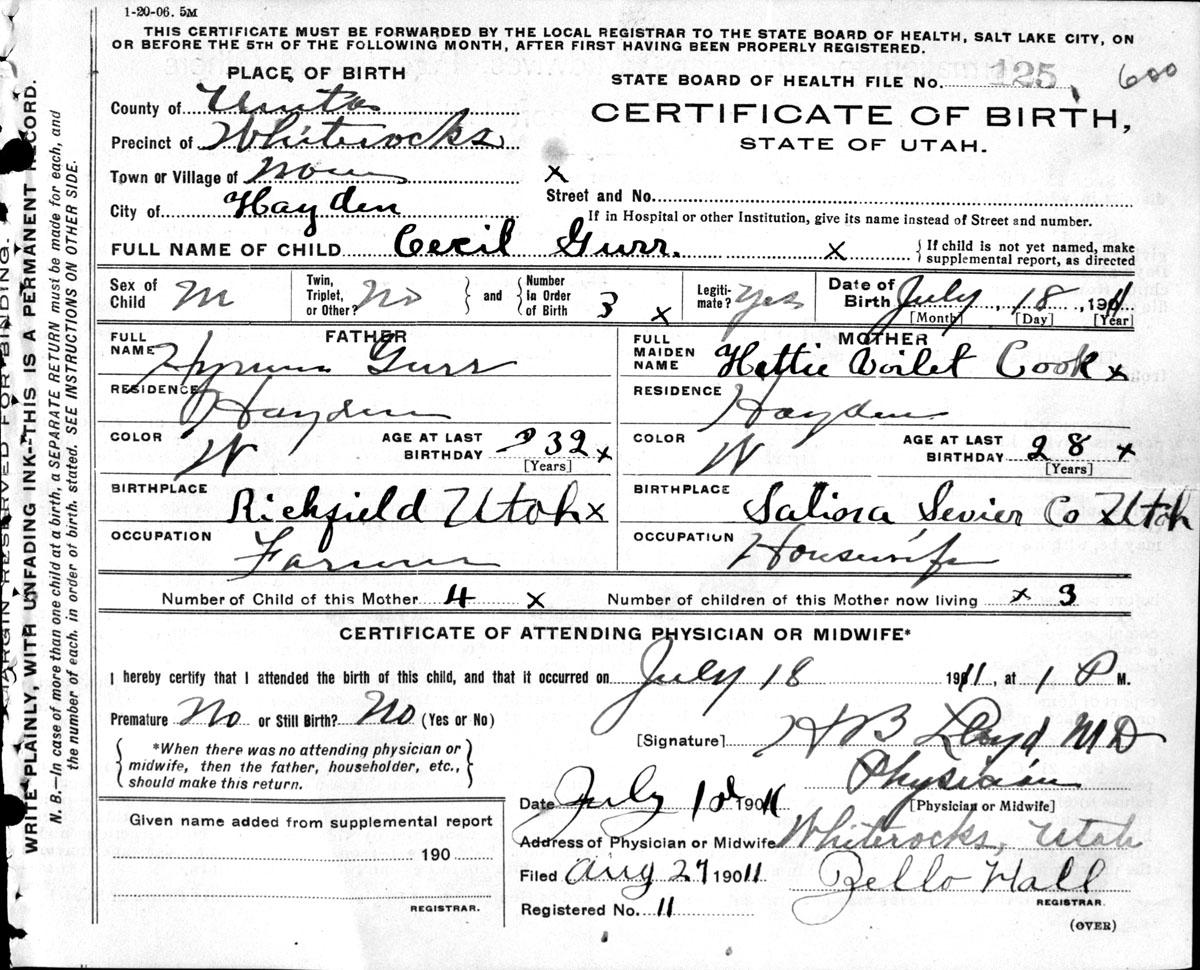 1-20-06. 5M
THIS CERTIFICATE MUST BE FORWARDED BY THE LOCAL REGISTRAR TO THE STATE BOARD OF HEALTH, SALT LAKE CITY, ON
OR BEFORE THE 5TH OF THE FOLLOWING MONTH, AFTER FIRST HAVING BEEN PROPERLY REGISTERED.
PLACE OF BIRTH
STATE BOARD OF HEALTH FILE No. 125 600
County of Uinta
CERTIFICATE OF BIRTH,
Precinct of Whiterocks
STATE OF UTAH.
Town or Village of x
Street and No.
City of Hayden
If in Hospital or other Institution, give its name instead of Street and number.
FULL NAME OF CHILD Cecil Gurr. x { If child is not yet named, make supplemental report, as directed
Sex of Child M Twin, Triplet, or Other? No } and { Number in Order of Birth 3 x Legiti-mate? Yes Date of Birth July, 18, 1911
[Month] [Day] [Year]
FATHER MOTHER
FULL NAME Hyrum Gurr
FULL MAIDEN NAME Hettie Voilet Cook x
RESIDENCE Hayden
RESIDENCE Hayden
COLOR W AGE AT LAST BIRTHDAY 32 x [Years]
COLOR W AGE AT LAST BIRTHDAY 28 x [Years]
BIRTHPLACE Richfield Utah x
BIRTHPLACE Salina Sevier Co Utah
OCCUPATION Farmer
OCCUPATION Housewife
Number of Child of this Mother 4 x Number of children of this Mother now living x 3
CERTIFICATE OF ATTENDING PHYSICIAN OR MIDWIFE*
I hereby certify that I attended the birth of this child, and that it occurred on July 18 1911, at 1 P M.
Premature No or Still Birth? No (Yes or No)
[Signature] H B Lloyd MD
{ *When there was no attending physician or
midwife, then the father, householder, etc.,
should make this return. }
Physician
Date July 1911 [Physician or Midwife]
Address of Physician or Midwife Whiterocks, Utah
Given name added from supplemental report
190
REGISTRAR.
Filed Aug 27 1911 Zello Hall
REGISTRAR.
Registered No. 11
(OVER)
MARGIN RESERVED FOR BINDING.
WRITE PLAINLY, WITH UNFADING INK--THIS IS A PERMANENT RECORD.
N. B.—In case of more than one child at a birth, a SEPARATE RETURN must be made for each, and
the number of each, in order of birth, stated. SEE INSTRUCTIONS ON OTHER SIDE.